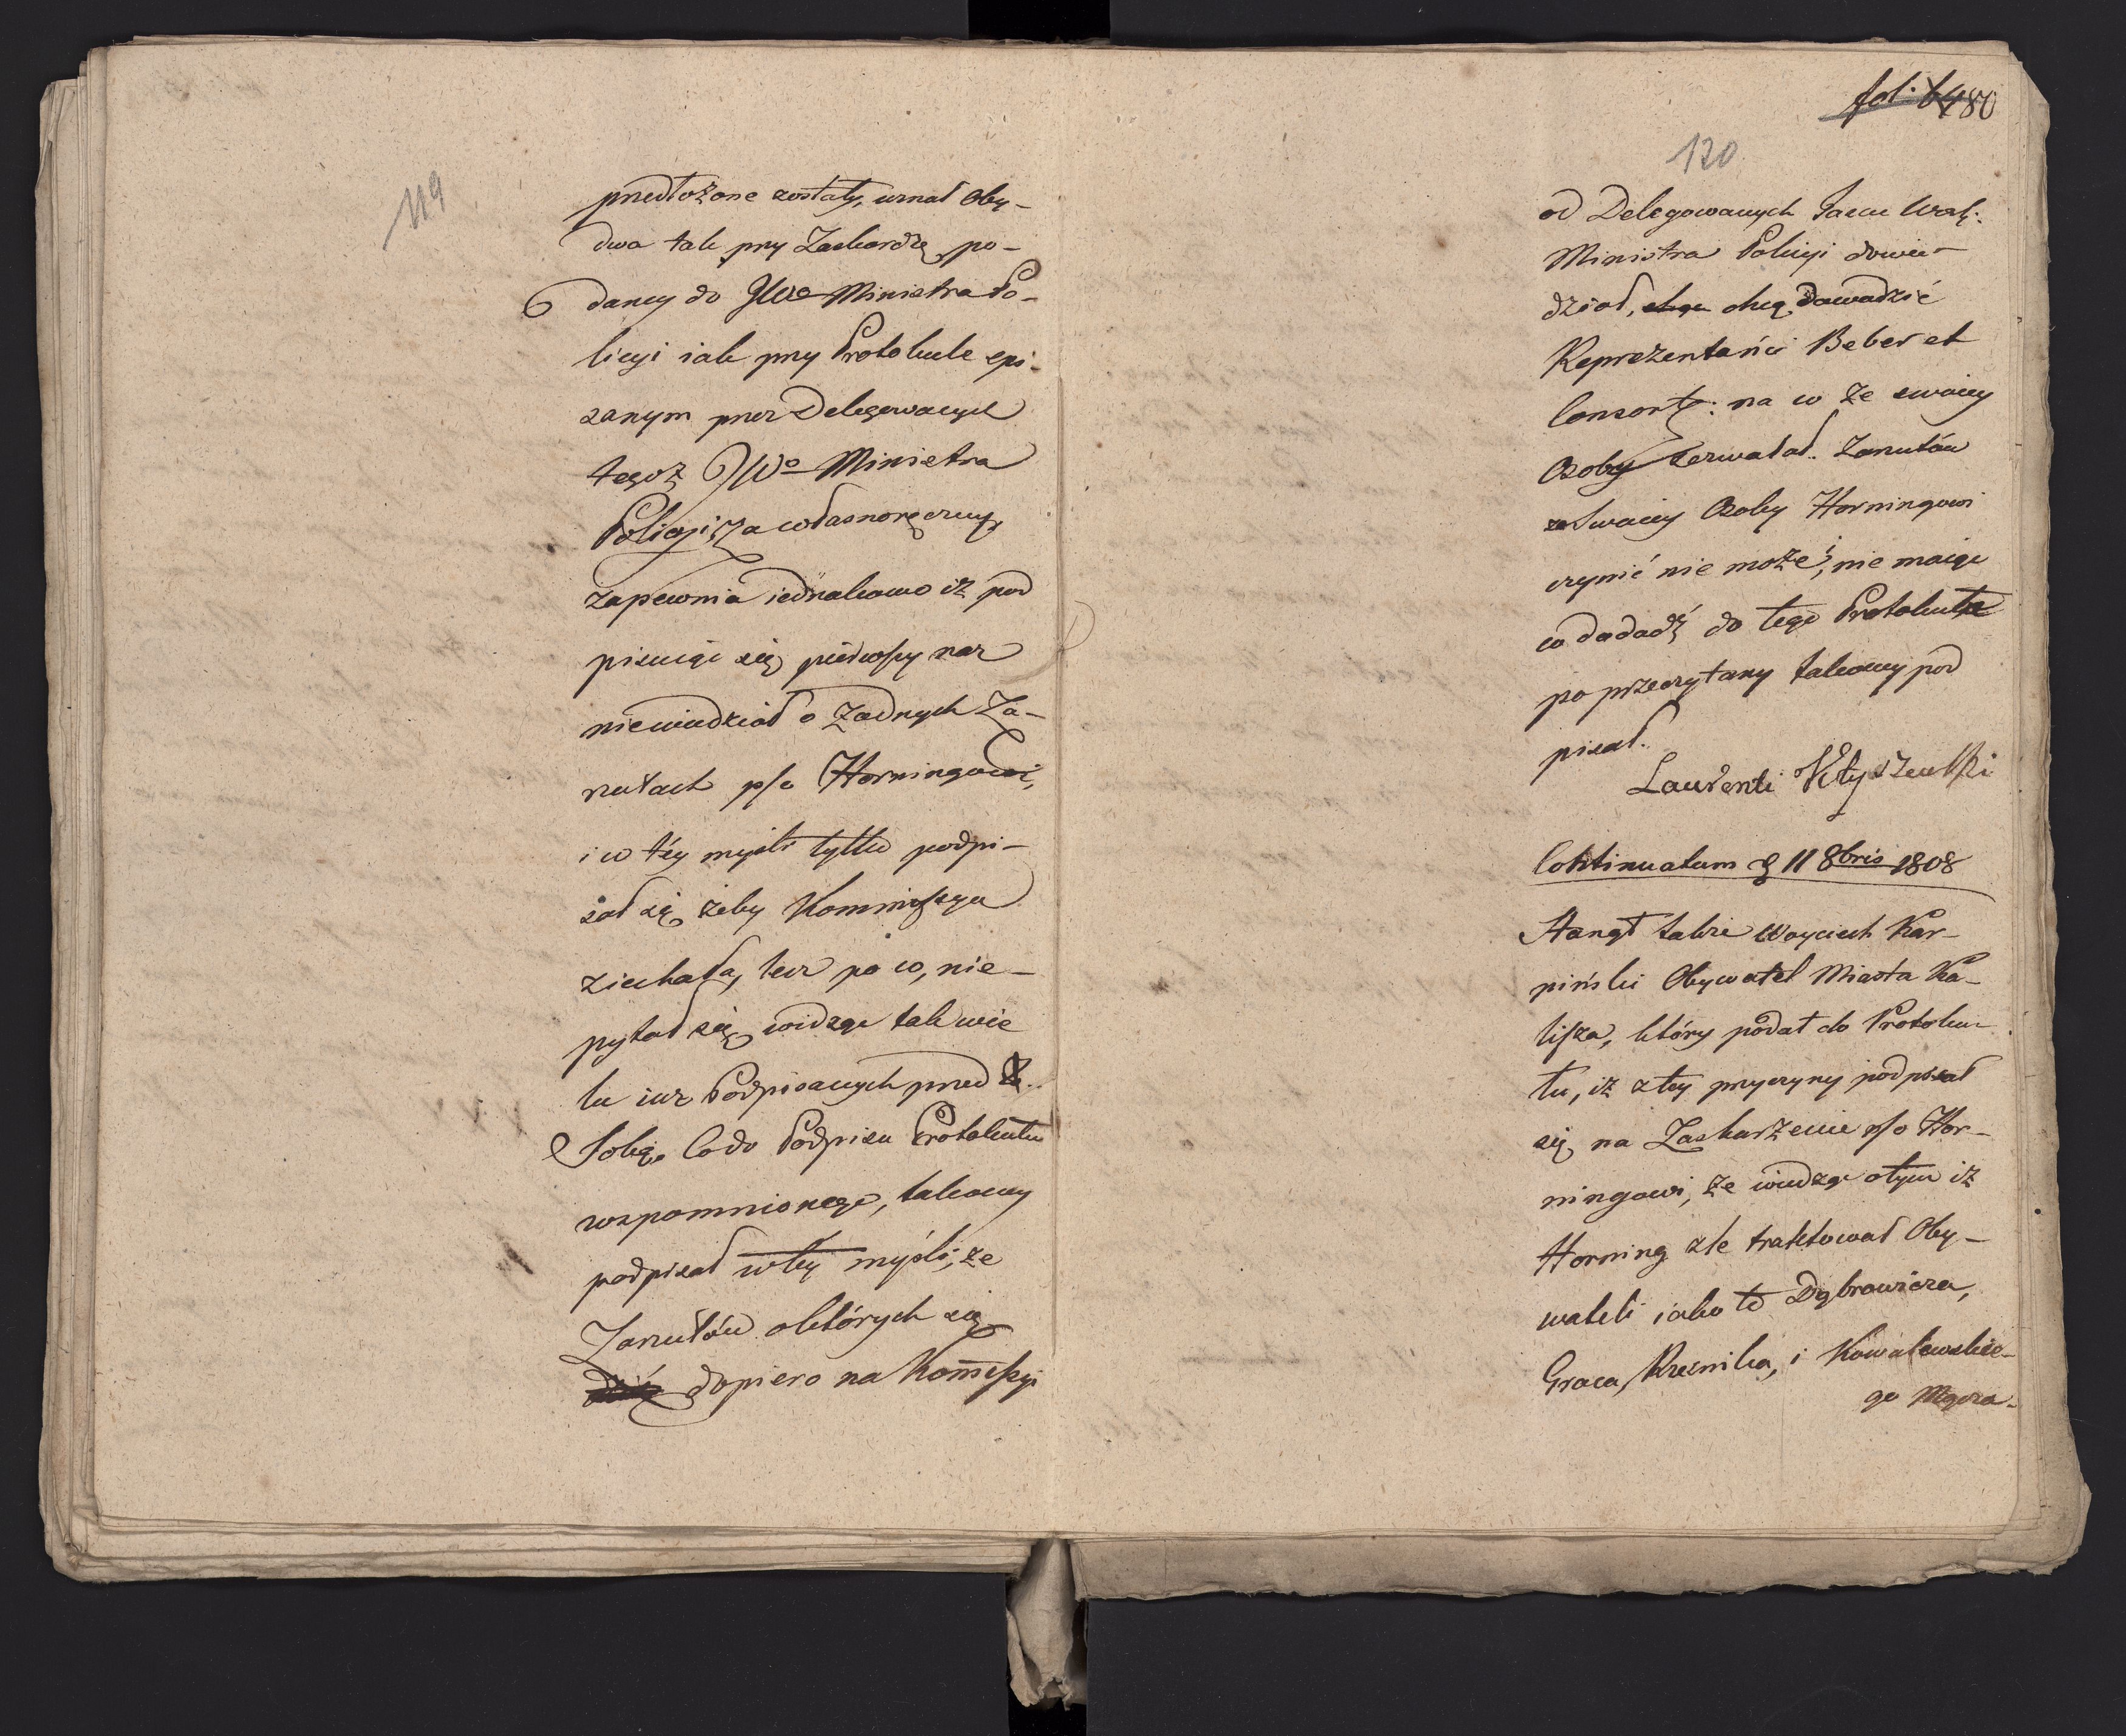 119
przedłożone zostały, uznał Oby-
dwa tak przy Zaskardzę po-
daney do JWo Ministra Po-
licyi iak przy Protokule spi-
sanym przez Delegowanych
tegoż JWo Ministra
Policyi za własnoręczny,
zapewnia iednakowo iż pod
pisuiąc się pierwszy raz
niewiedział o Żadnych Za-
rzutach p/o Horningowi,
i w téy myśli tylko podpi-
sał się żeby Kommissya
ziechała, lecz po co, nie-
pytał się widząc tak wie
lu iuż Podpisanych przed
Sobą. Co do Podpisu Protokułu
wspomnionego, takowy
podpisał wtéy myśli, że
Zarzutów októrych się
dopiero na Kommissyi
fol: 64 80
120
od Delegowanych Jaśnie Wielż:
Ministra Policyi dowie-
dział, chcą dowadzić
Reprezentańci Beber et
Consort: na co że swoiey
Osoby zezwalał. Zarzutów
ze Swoiey Osoby Horningowi
czynić nie może, i nie maiąc
co dodadź do tego Protokułu
po przeczytany takowy pod
pisał.
Laurenti Kłyszewski
Continuatum d 11 8bris 1808
Stanął także Woyciech Kar-
piński Obywatel Miasta Ka-
lisza, który podał do Protoku-
łu, iż z tey przyczyny podpisał
się na Zaskarżenie p/o Hor-
ningowi, że wiedząc otym iż
Horning źle traktował Oby-
wateli iako to Dąbrowicza,
Graca, Rzeźnika, i Kowalewskie-
go Mącza-